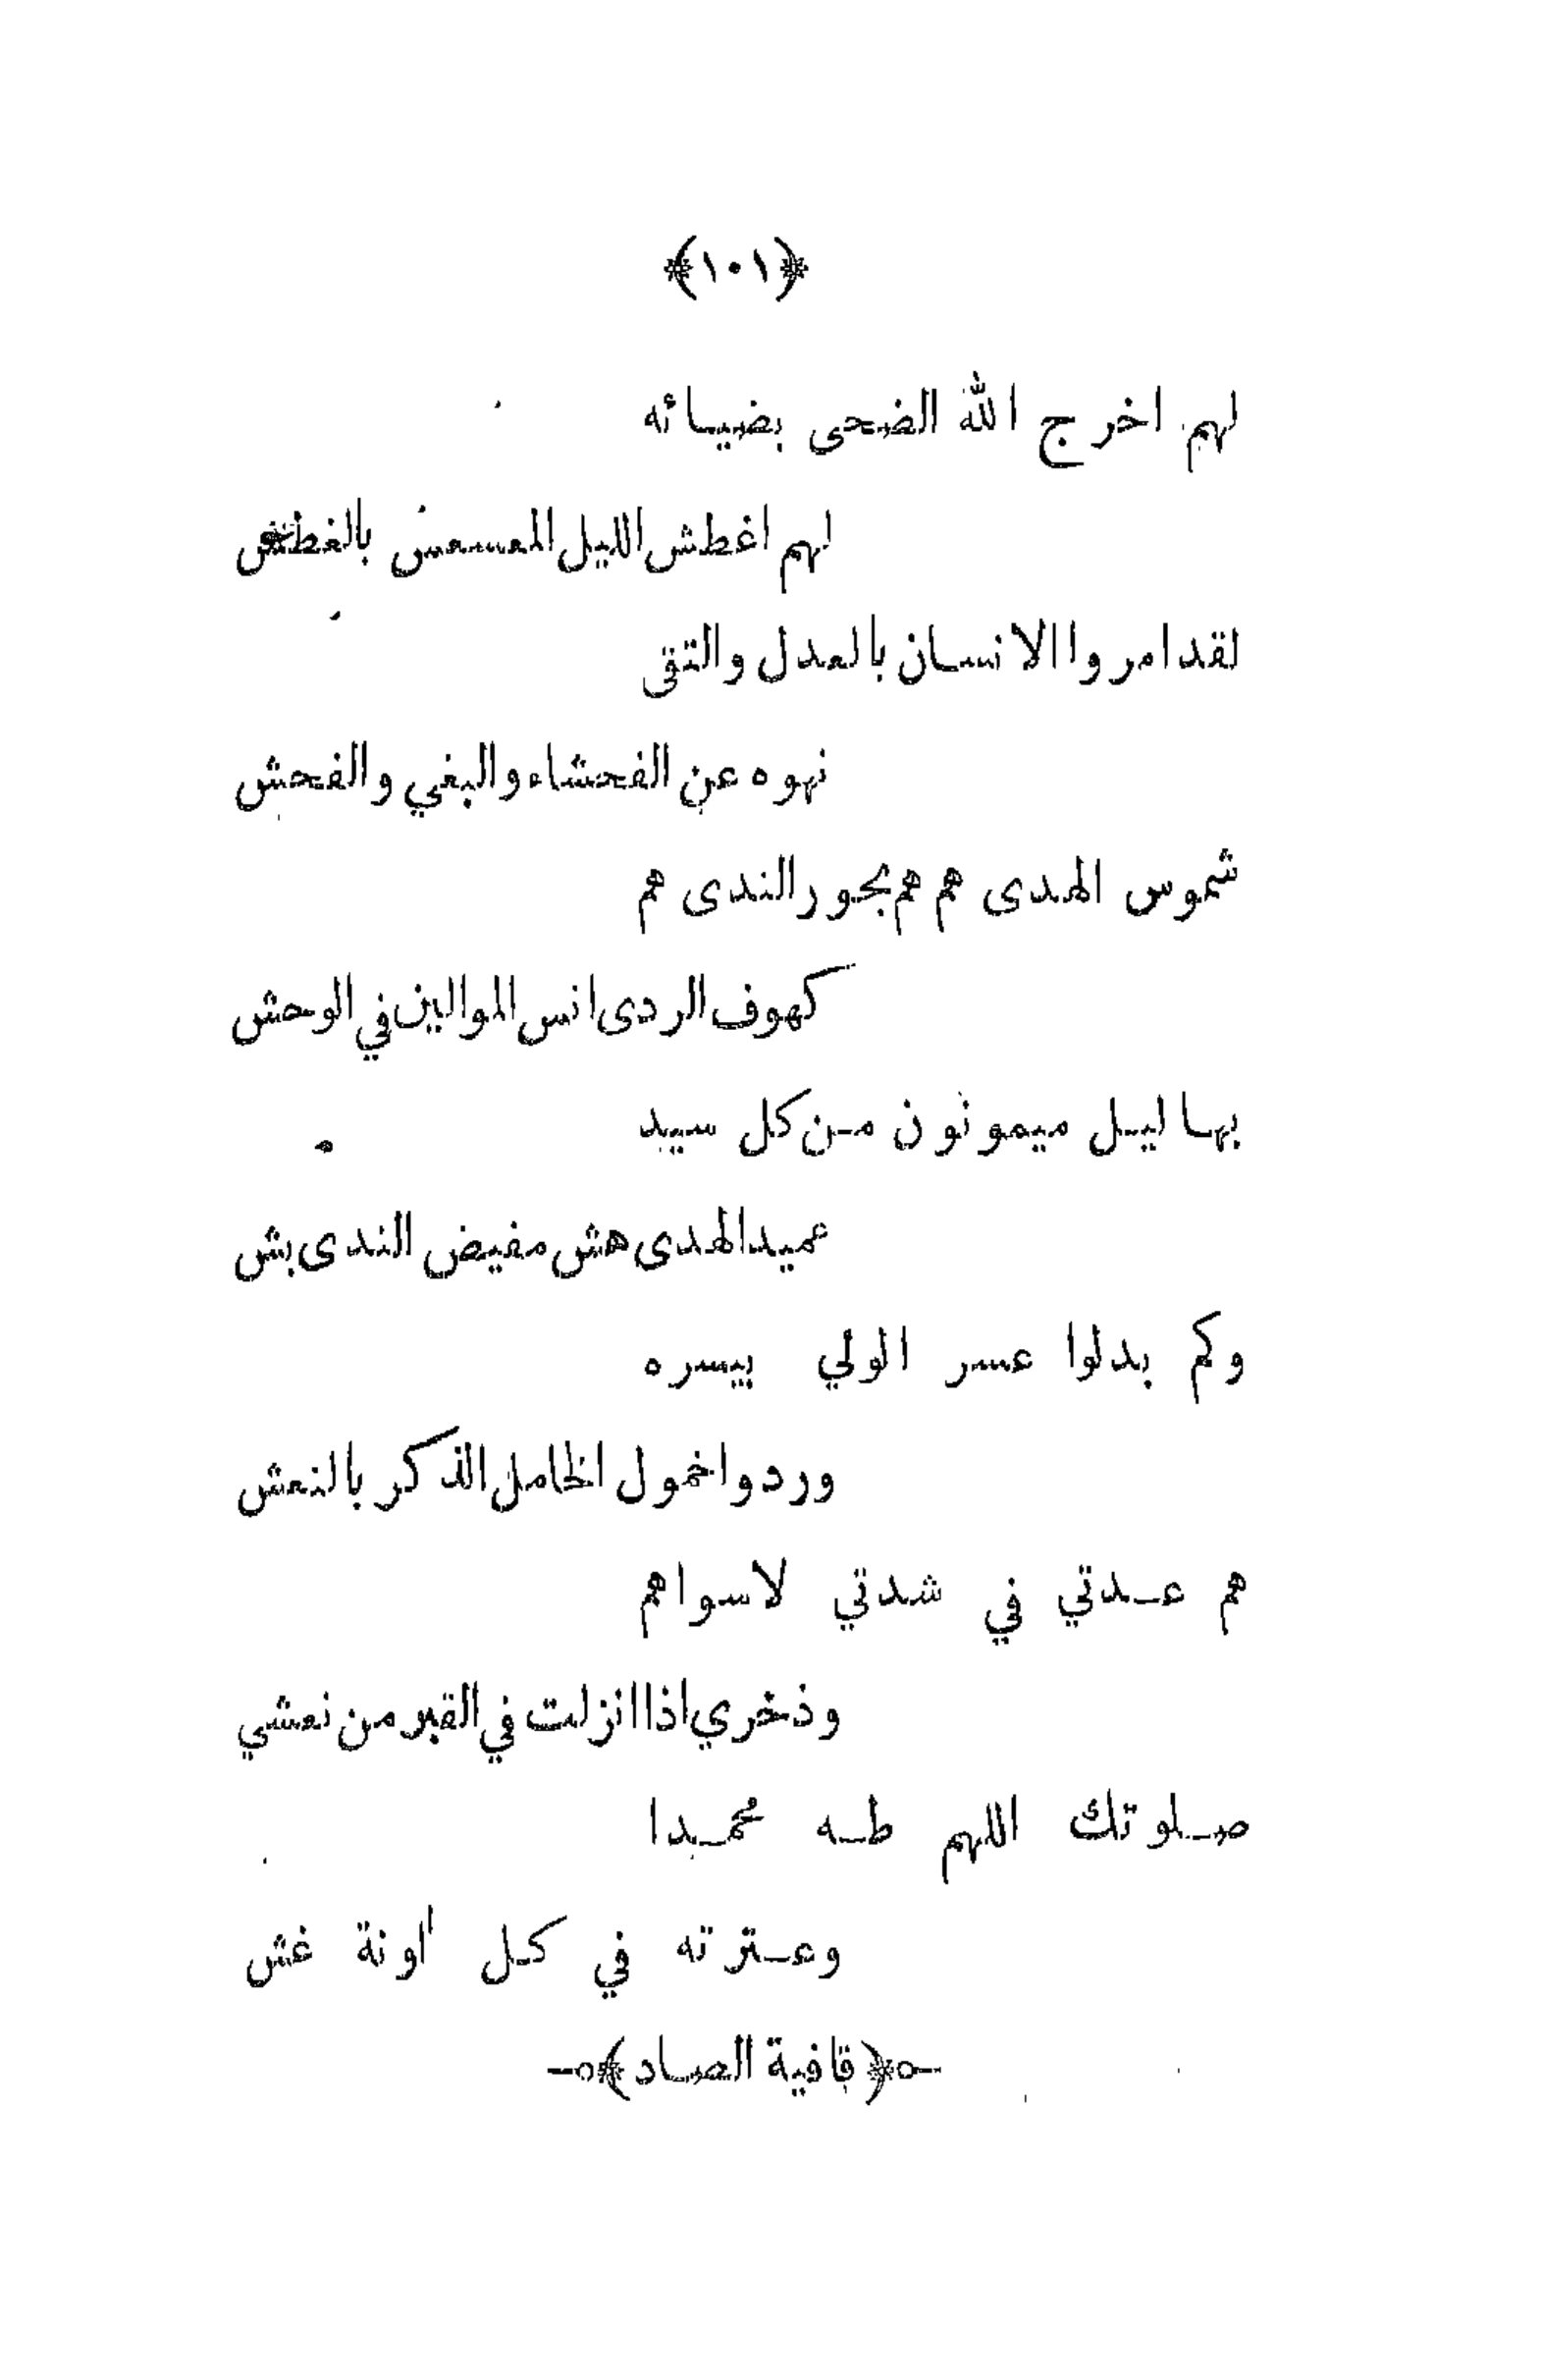 ﴿١٠١﴾
لهم اخرج الله الضحى بضيائه
لهم اغطش الليل المعسعس بالغطش
لقد امروا الانسان بالعدل والتقى
نهوه عن الفحشاء والبغي والفحش
شموس الهدى هم هم بحور الندى هم
كهوف الردى انس الموالين في الوحش
بهاليل ميمونون من كل سيد
عميد الهدى هش مفيض الندى بش
وكم بدلوا عسر الولي بيسره
وردوا خمول الخامل الذكر بالنعش
هم عدتي في شدتي لا سواهم
وذخري اذا انزلت في القبر من نعشي
صلوتك اللهم طه محمدا
وعترته في كل اونة غش
﴿قافية الصاد﴾